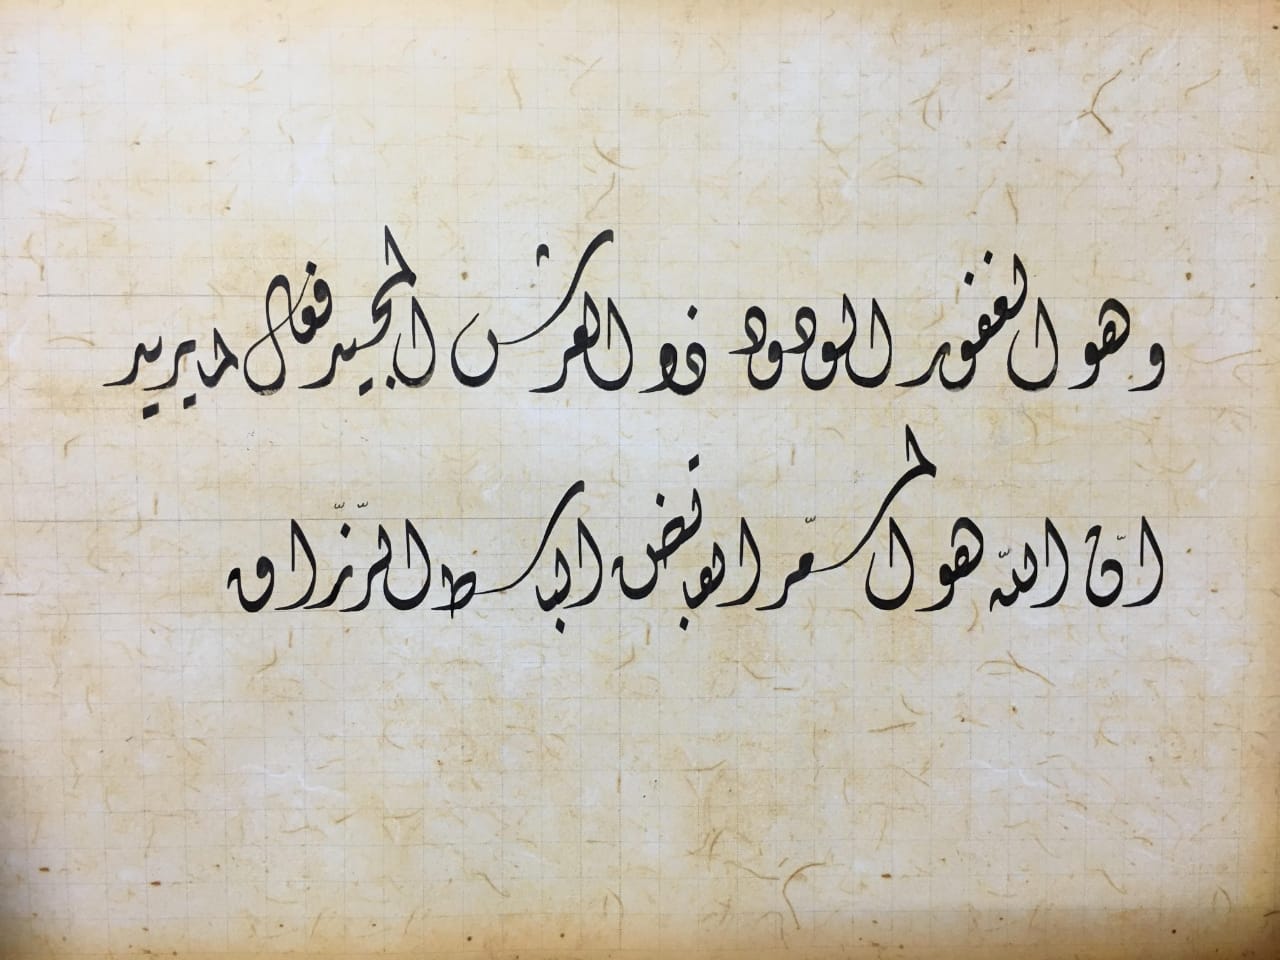 وهو الغفور الودود ذو العرش المجيد فعال لما يريد
ان الله هو المسعّر القابض الباسط الرّزّاق